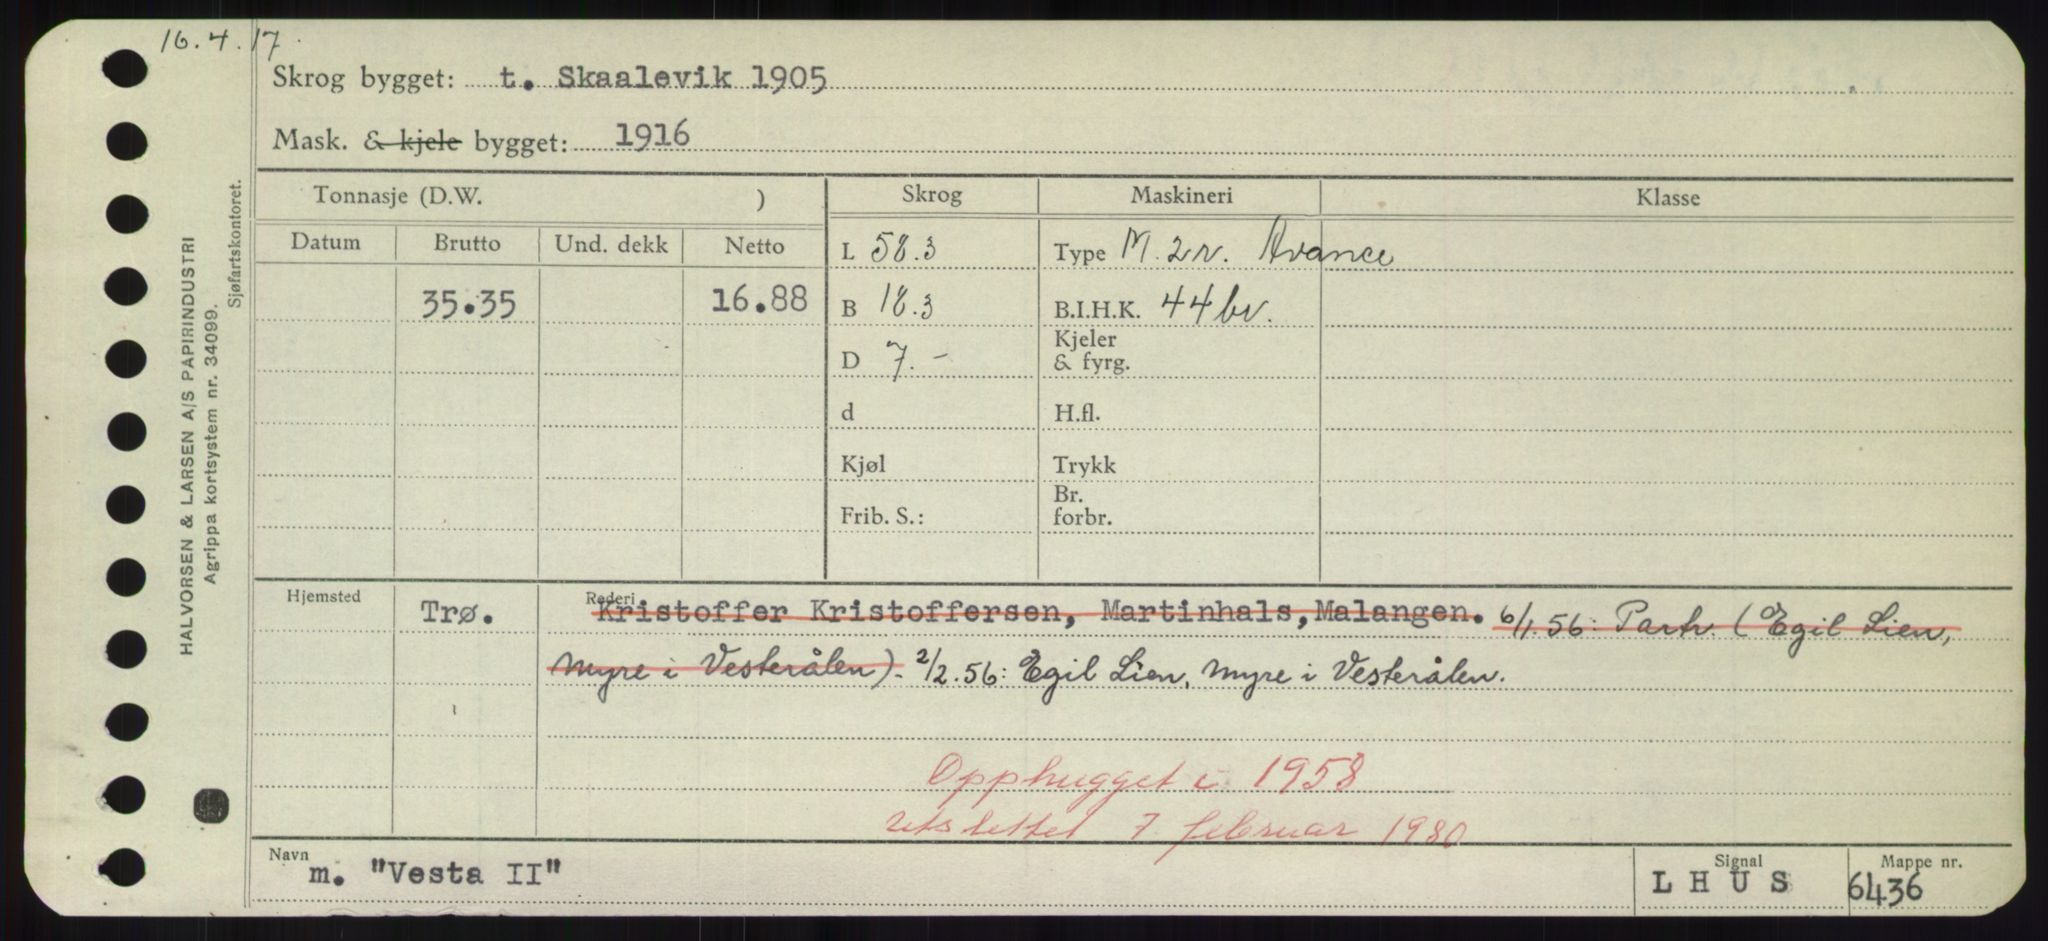 16.4.17.
Skrog bygget: t. Skaalevik 1905
Mask. & kjele bygget: 1916
Tonnasje (D.W. ) Skrog Maskineri Klasse
Datum Brutto Und. dekk Netto
L 58.3 Type M. 2r. Avance
35.35 16.88 B 18.3 B.I.H.K. 44 br.
D 7.- Kjeler & fyrg.
d H.fl.
Kjøl Trykk
Frib. S.: Br. forbr.
Hjemsted Trø. Rederi Kristoffer Kristoffersen, Martinhals, Malangen. 6/1.56: Partr. (Egil Lien,
Myre i Vesterålen)- 2/2.56: Egil Lien, Myre i Vesterålen.
Opphugget i 1958
utslettet 7 februar 1980
Navn m. "Vesta II" Signal L H U S Mappe nr. 6436
HALVORSEN & LARSEN A/S PAPIRINDUSTRI
Agrippa kortsystem nr. 34099.
Sjøfartskontoret.